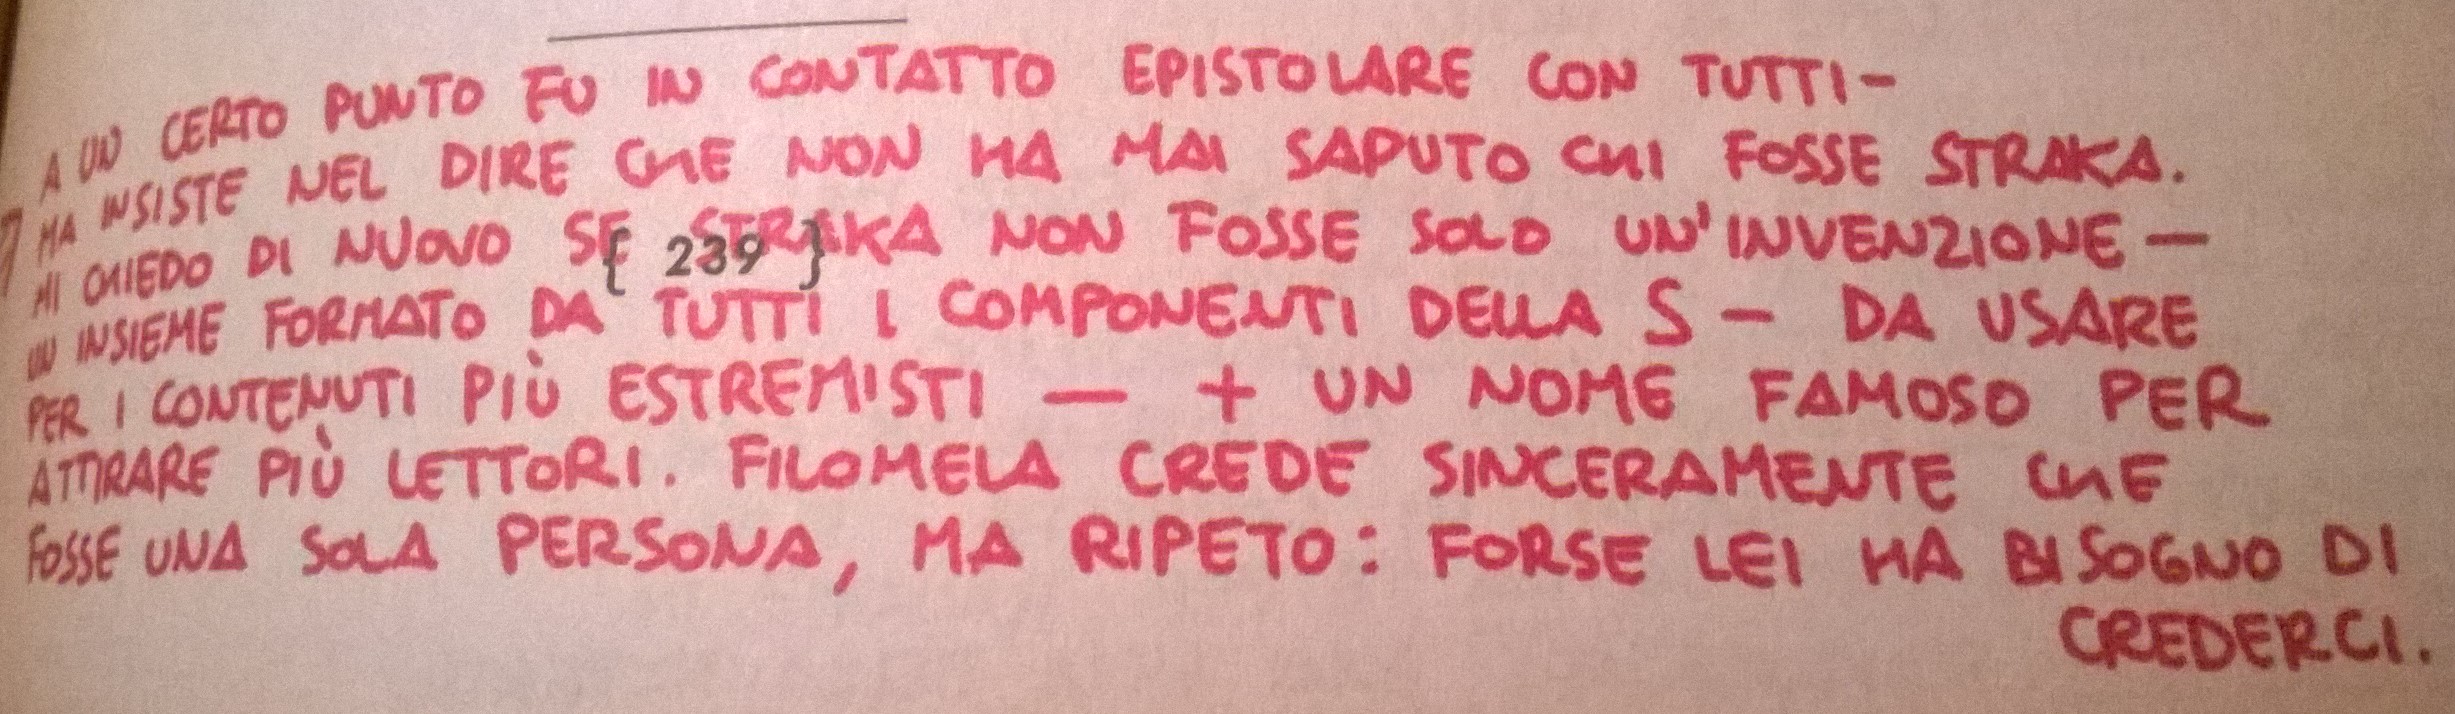 A UN CERTO PUNTO FU IN CONTATTO EPISTOLARE CON TUTTI-
MA INSISTE NEL DIRE CHE NON HA MAI SAPUTO CHI FOSSE STRAKA.
MI CHIEDO DI NUOVO SE STRAKA NON FOSSE SOLO UN'INVENZIONE —
{ 239 }
UN INSIEME FORMATO DA TUTTI I COMPONENTI DELLA S — DA USARE
PER I CONTENUTI PIÙ ESTREMISTI — + UN NOME FAMOSO PER
ATTIRARE PIÙ LETTORI. FILOMELA CREDE SINCERAMENTE CHE
FOSSE UNA SOLA PERSONA, MA RIPETO: FORSE LEI HA BISOGNO DI
CREDERCI.